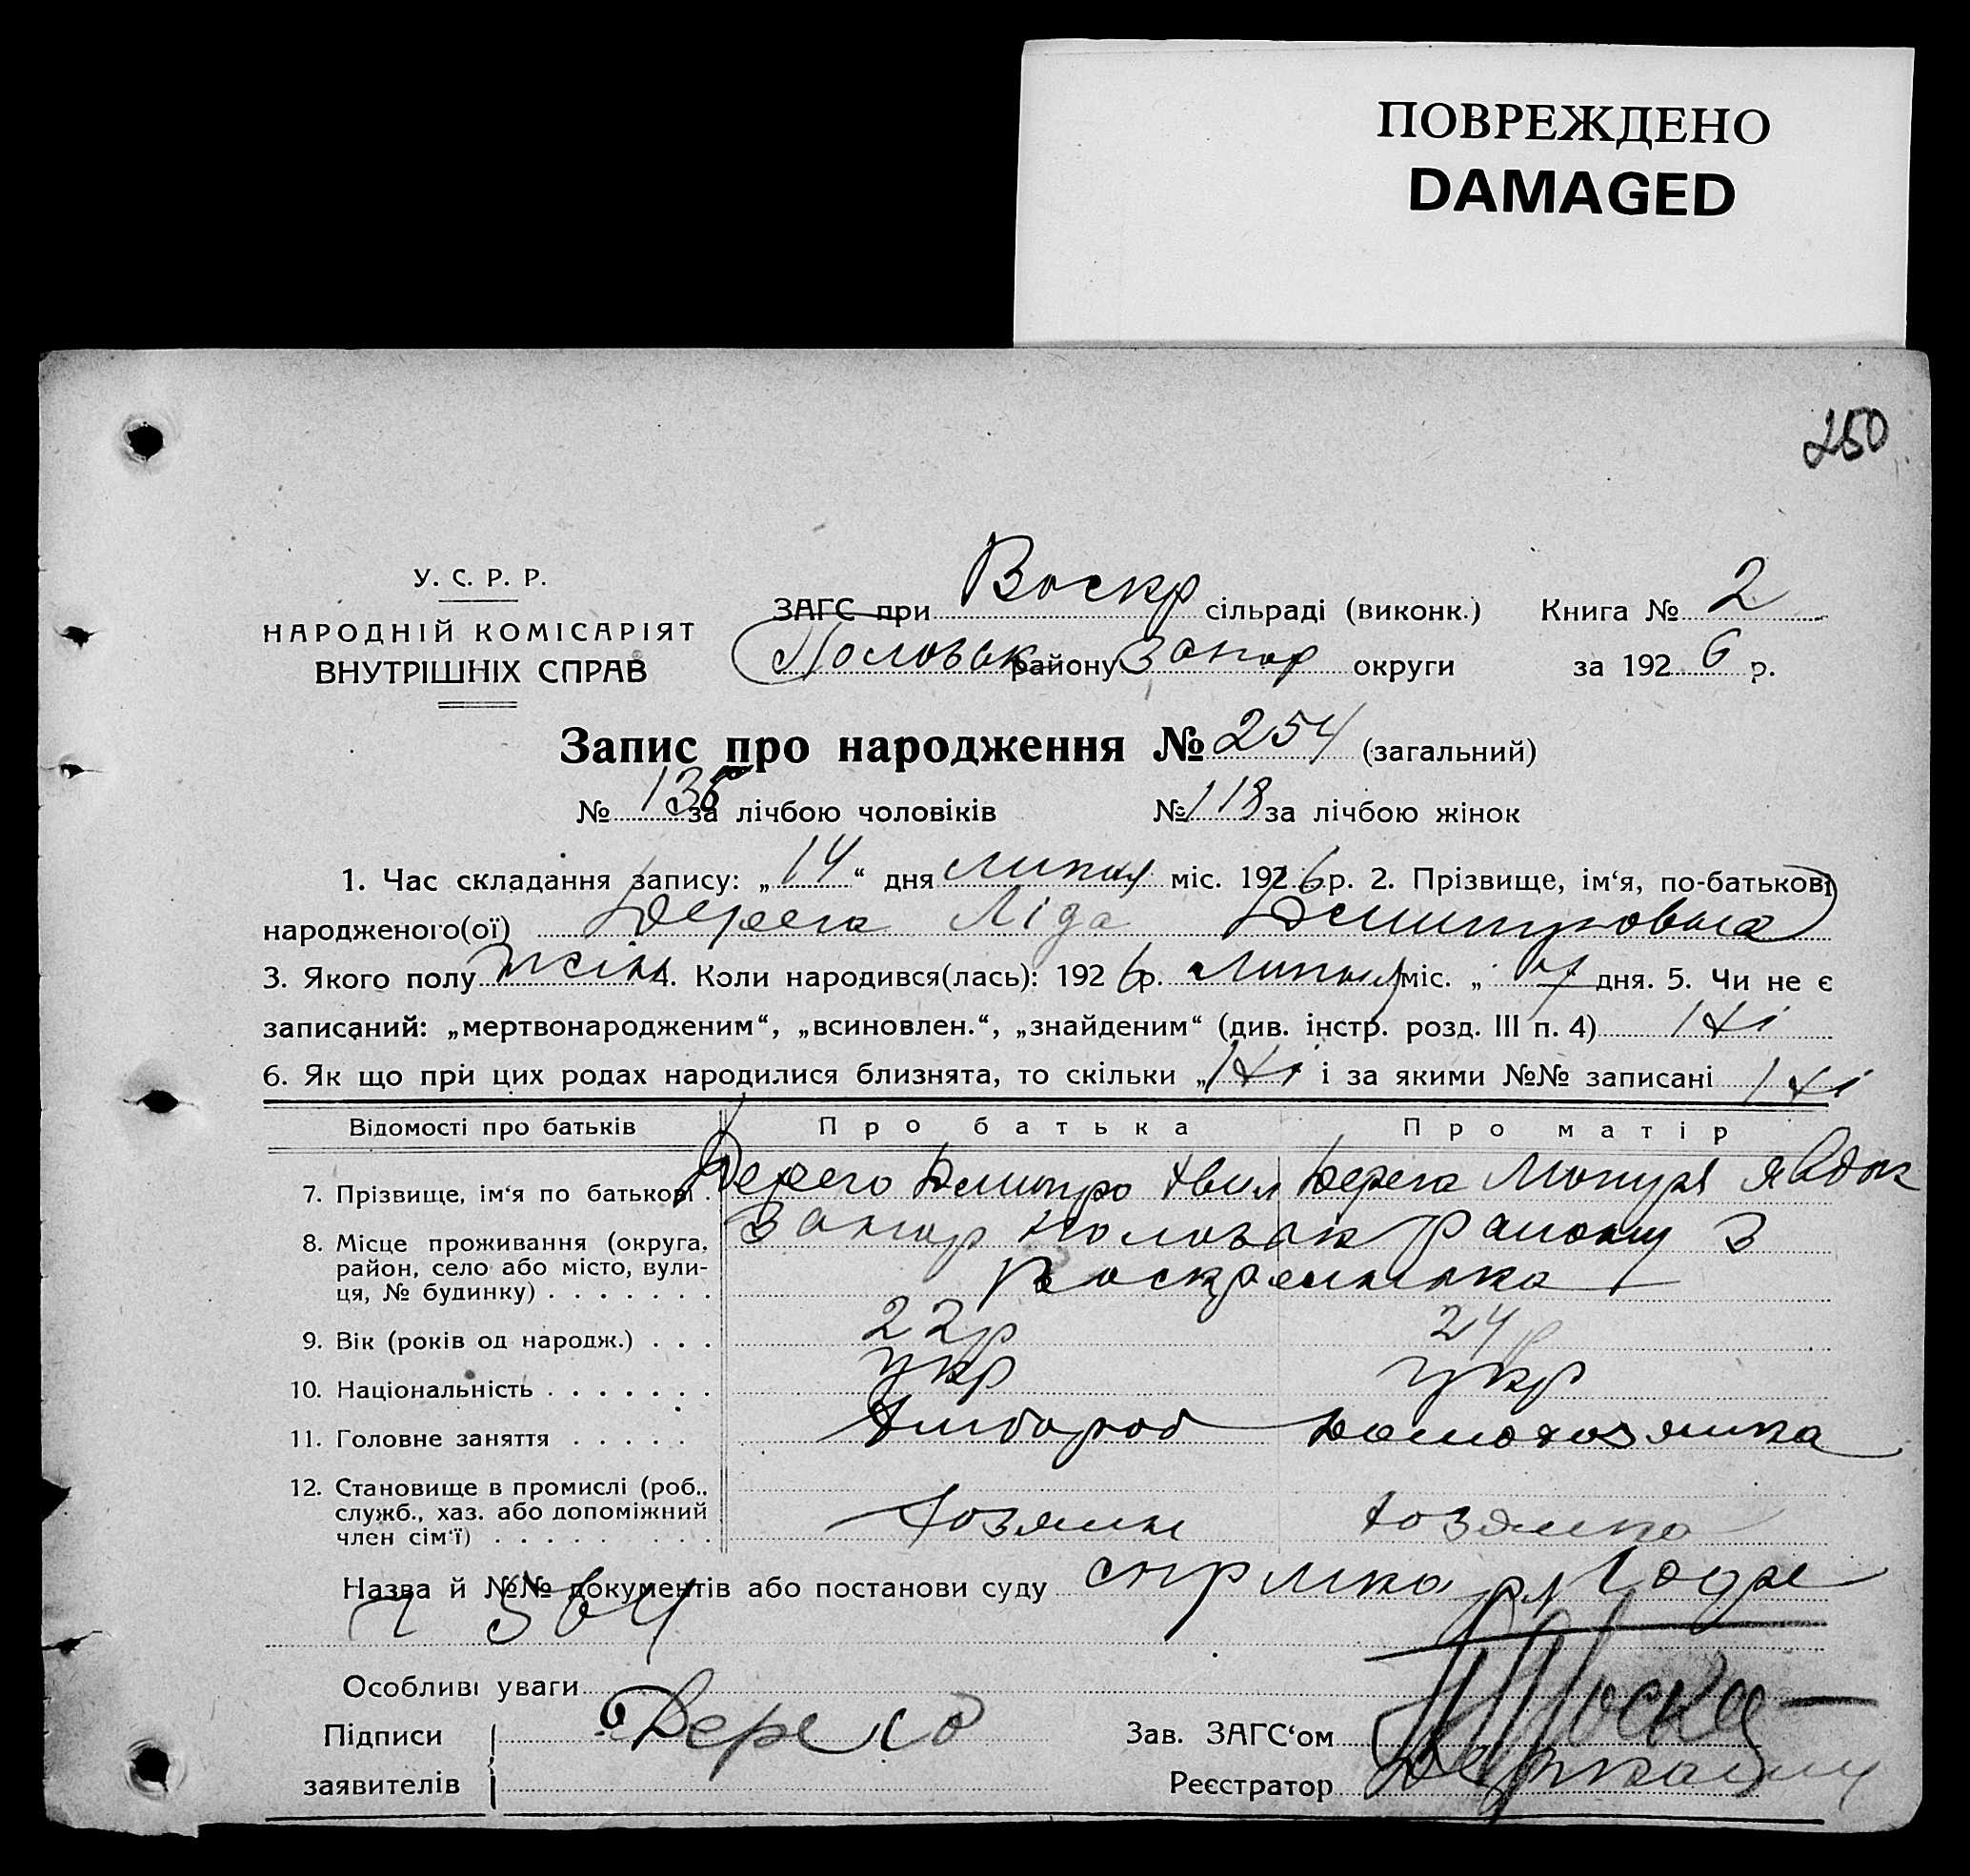 ПОВРЕЖДЕНО
DAMAGED
250
У. С. Р. Р.
НАРОДНІЙ КОМІСАРІЯТ
ВНУТРІШНІХ СПРАВ
ЗАГС при Воскр сільраді (виконк.) Книга № 2
району Запор округи за 1926 р.
Запис про народження № 254 (загальний)
№ 136 за лічбою чоловіків № 118 за лічбою жінок
1. Час складання запису: „14“ дня липня міс. 1926 р. 2. Прізвище, ім‘я, по-батькові
народженого(ої) Дерега Ліда Дмитровна
3. Якого полу жін 4. Коли народився(лась): 1926 р. липня міс. „7 дня. 5. Чи не є
записаний: „мертвонародженим“, „всиновлен.“, „знайденим“ (див. інстр. розд. III п. 4) Ні
6. Як що при цих родах народилися близнята, то скільки „Ні і за якими №№ записані Ні
Відомості про батьків Про батька Про матір
7. Прізвище, ім‘я по батькові . Дерега Дмитро Дерега Явдок
8. Місце проживання (округа, Запор району
район, село або місто, вули-
ця, № будинку) . . . . . . .
9. Вік (років од народж.) . . . 22р 24р
10. Національність . . . . . . . укр укр
11. Головне заняття . . . . . Хлібороб Домохозяйка
12. Становище в промислі (роб.,
служб., хаз. або допоміжний
член сім‘ї) . . . . . . . . . Хозяин хозяйка
Назва й №№ документів або постанови суду
564
Особливі уваги
Підписи Зав. ЗАГС‘ом
заявителів Реєстратор